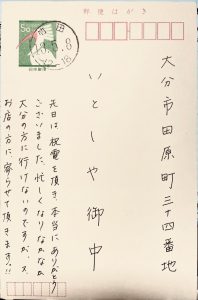 郵便はがき
50
日本郵便
大分市田原町三十四番地
いとしや御中
先日は、祝電を頂き、本当にありがとう
ございました。忙しくなりなかなか
大分の方に行けないのですが、又、
お店の方に、寄らせて頂きます!!